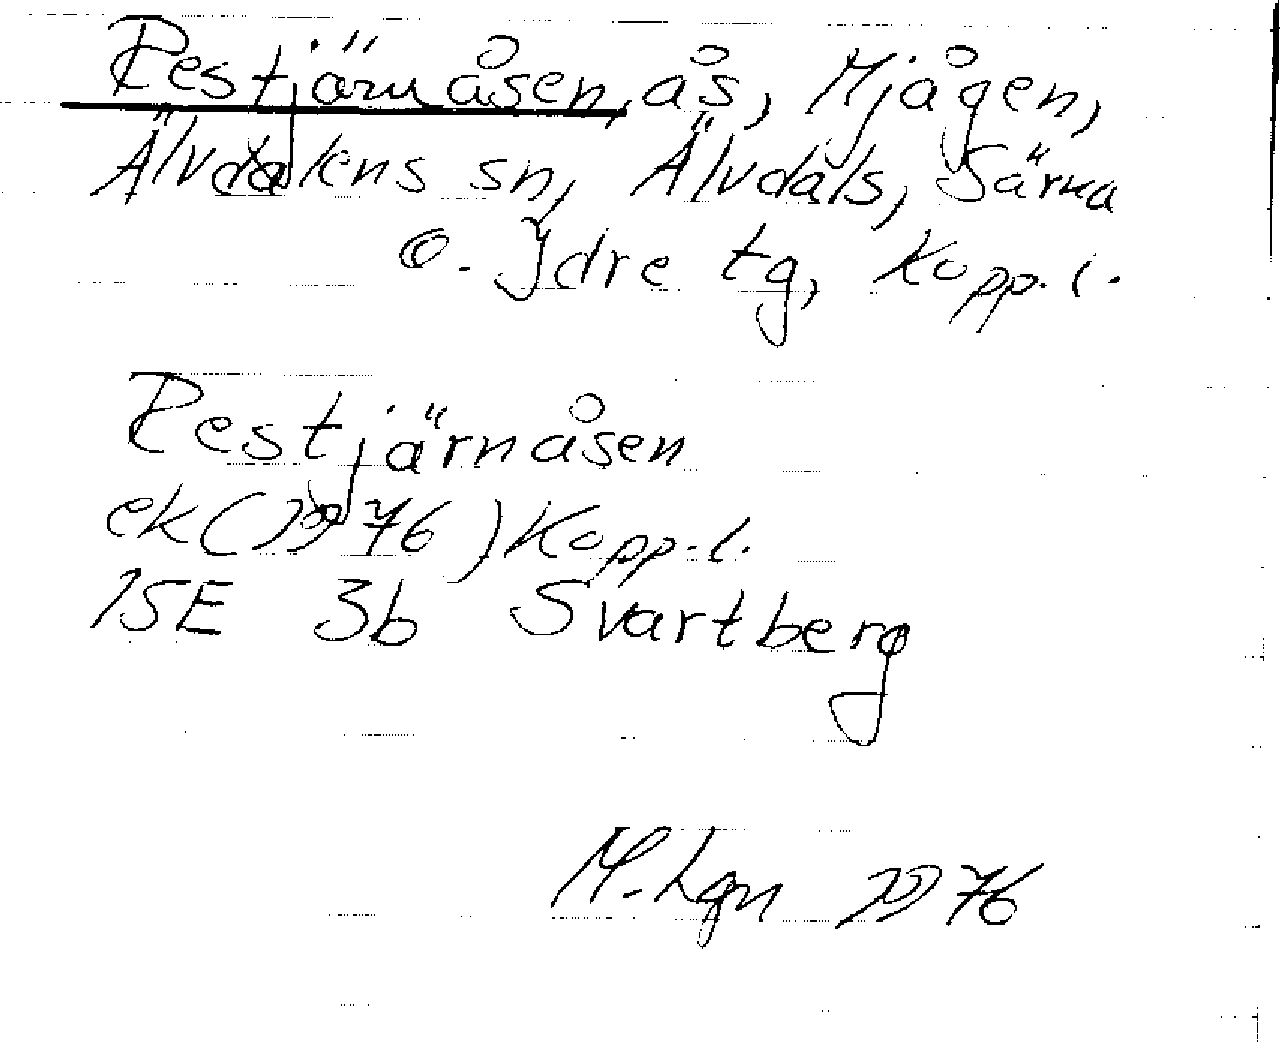 Restjärnåsen, ås, Mjågen,
Älvdalens sn, Älvdals, Särna
o. Idre tg, Kopp. l.
Restjärnåsen
ek (1976) Kopp. l.
15E 3b Svartberg
M. Lgn 1976